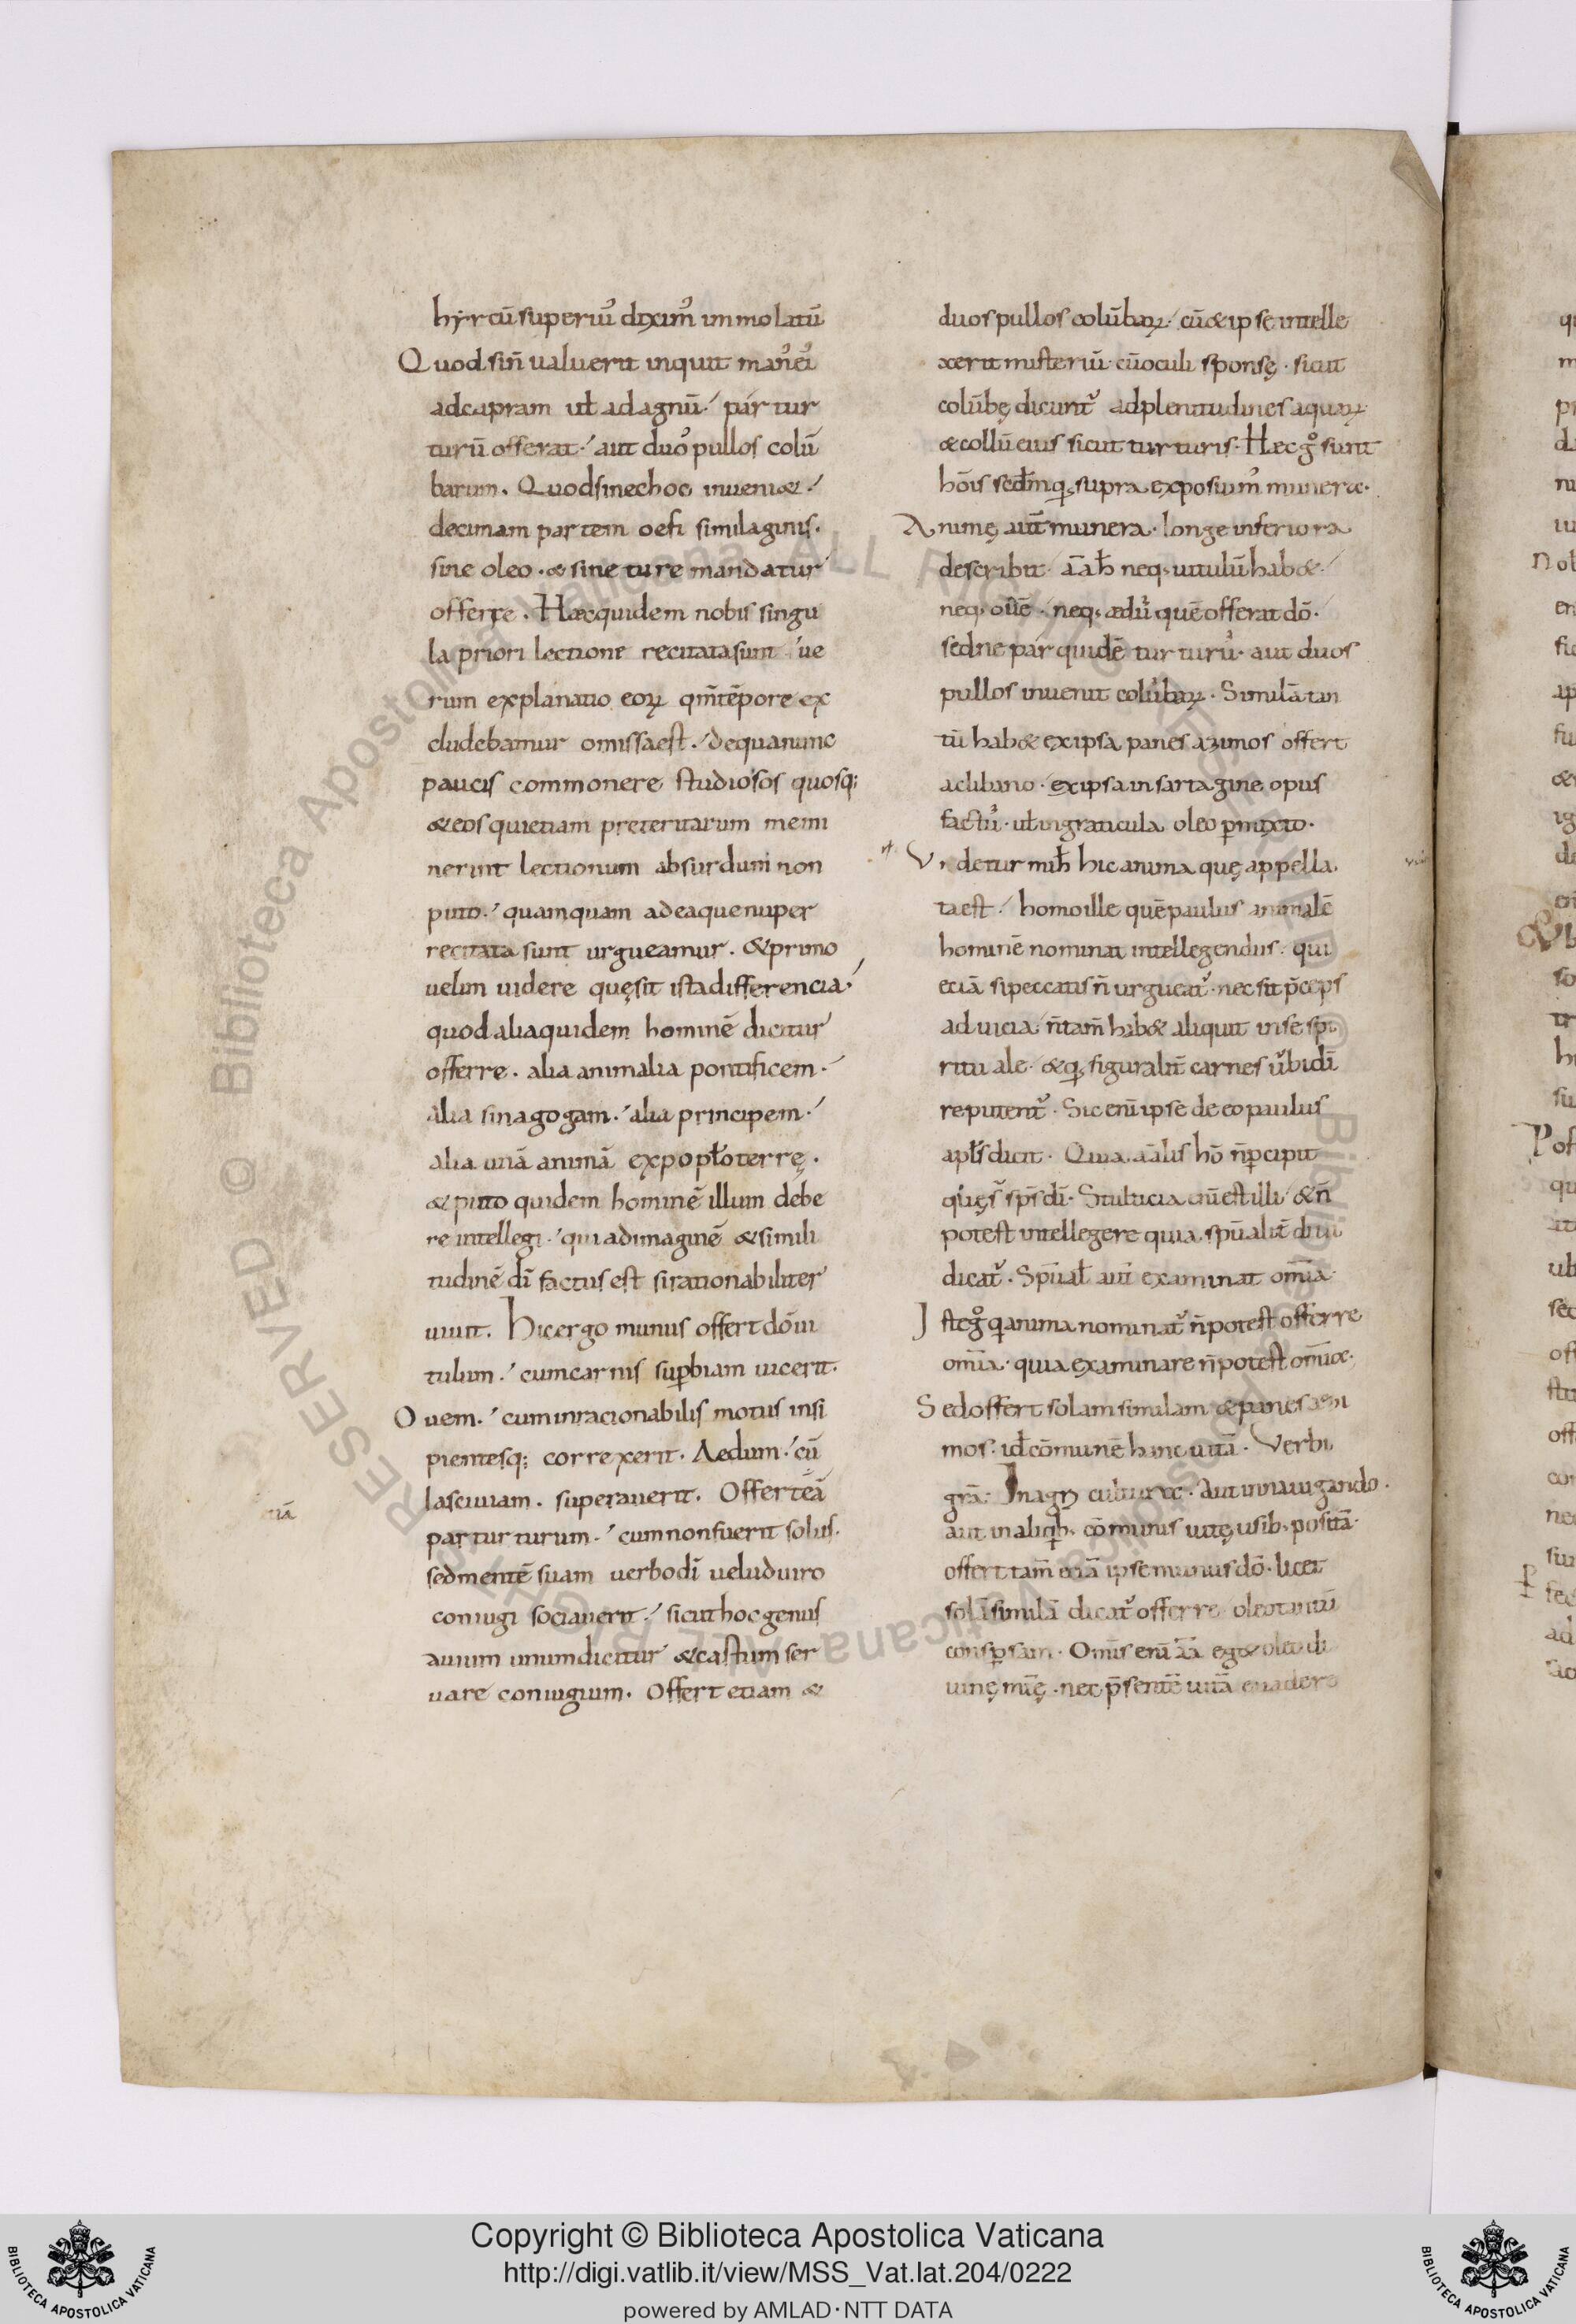 hyrcū superiꝰ diximꝰ immolatū
Quod sin̄ ualuerit inquit manꝰ eiꝰ
ad capram uł ad agnū. par tur
turū offerat. aut duoꝰ pullos colū
barum. Quod si nec hoc inueni&.
decimam partem oefi similaginis.
sine oleo. & sine ture mandatur
offerre. Hæc quidem nobis singu
la priori lectione recitata sunt ue
rum explanatio eoꝝ qm̄ tēpore ex
cludebamur omissa est. de qua nunc
paucis commonere studiosos quosq;
& eos qui etiam preteritarum memi
nerint lectionum absurdum non
puto. quamquam ad ea que nuper
recitata sunt urgueamur. & primo
uelim uidere quę sit ista differencia.
quod alia quidem hominē dicitur
offerre. alia animalia pontificem.
alia sinagogam. alia principem.
alia unā animā ex popło terrę.
& puto quidem hominē illum debe
re intellegi. qui ad imaginē & simili
tudinē dī factus est si rationabiliter
uiuit. Hic ergo munus offert dō ui
tulum. cum carnis suꝑbiam uicerit.
Ouem. cum inracionabilis motus insi
pientesq; correxerit. Aedum. cū
lasciuiam. superauerit. Offert eā
par turturum. cum non fuerit solus.
sed mentē suam uerbo dī uelud uiro
coniugi sociauerit. sicut hoc genus
auium unum dicitur & castum ser
uare coniugium. Offert etiam &
duos pullos colūbaꝝ. cū & ipse intelle
xerit misteriū. cū oculi sponsę. sicut
colūbę dicunt᷑ ad plenitudines aquaꝝ
& collū eius sicut turturis. Hæc gͦ sunt
hōis sedm̄ q; supra exposuimꝰ munera.
Animę aut̄ munera. longe inferiora
describit. āā h̄ neq; uitulū hab&.
neq; ouē. neq; ædū quē offerat dō.
sed ne par quidē turturū. aut duos
pullos inuenit colūbaꝝ. Similā tan
tū hab& ex ipsa panes azimos offert
a clibano. ex ipsa in sartagine opus
factū. uł in graticula oleo ꝑmixto.
Videtur mih̄ hic anima quę appella
ta est. homo ille quē paulus animalē
hominē nominat intellegendus. qui
eciā si peccatis n̄ urgueat᷑. nec sit p̄ceps
ad uicia. n̄ tam̄ hab& aliquit in se spi
rituale.
reputent᷑. Sic enī ipse de eo paulus
apłs dicit. Quia āālis hō n̄ ꝑcipit
spꝰ dī. Stulticia enī est illi & n̄
potest intellegere quia spūalit̄ diiu
dicat᷑. Spūał aut̄ examinat omīa.
Iste gͦ q anima nominat᷑ n̄ potest offerre
omīa. quia examinare n̄ potest omīa.
Sed offert solam similam & panes azi
mos. id̄ cōmunē hanc uitā. Verbi
grā. In agri cultura. aut in nauigando.
aut in aliqb; cōmunis uitę usib; positā.
offert tam̄ eciā ipse munus dō. licet
solā similā dicat᷑ offerre oleo tantū
consꝑsam. Omīs enī āā eg& oleo di
uinę mīę. nec p̄sentē uitā euadere